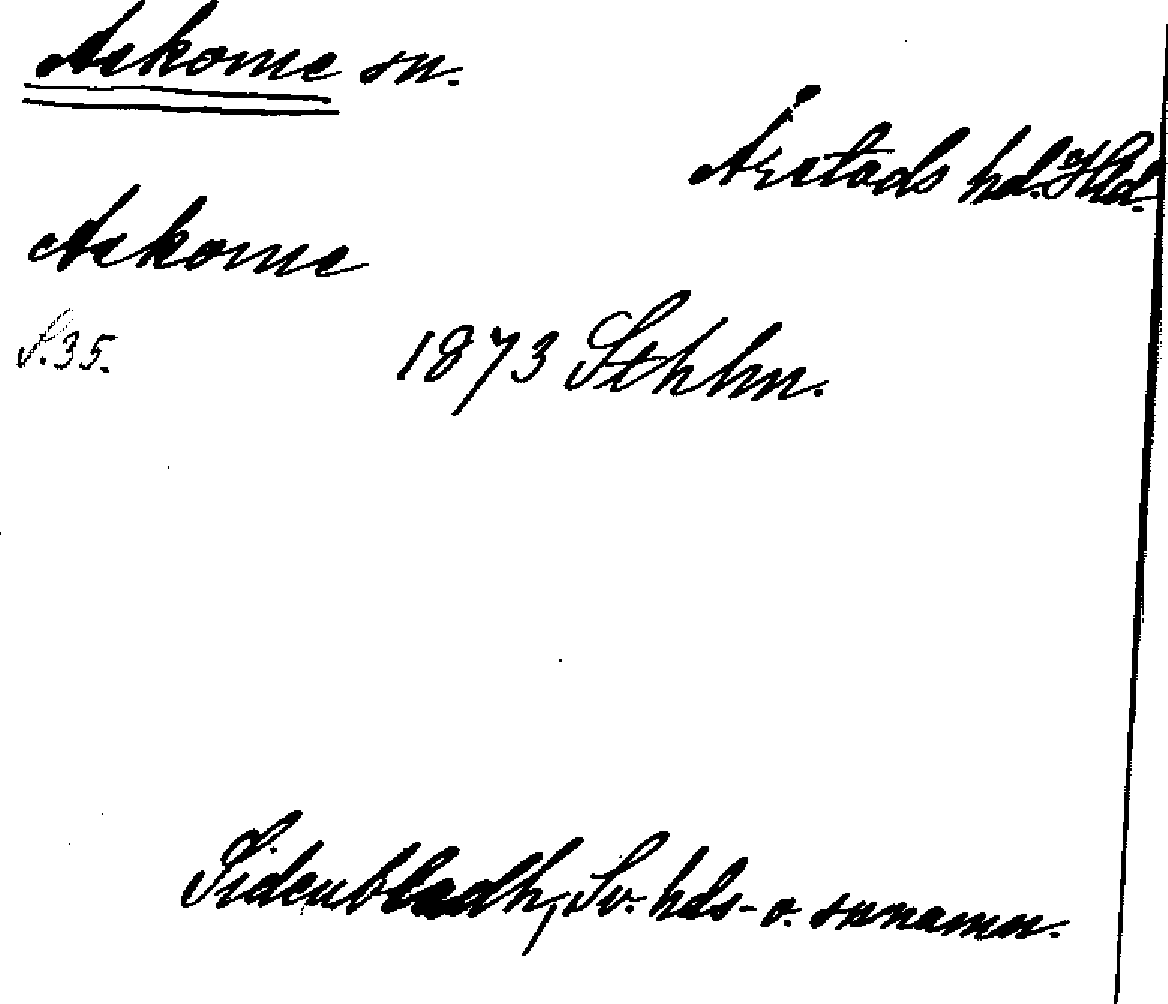 Askome sn.
Årstads hd. Hld.
Askome
S. 35.
1873 Sthlm.
Sidenbladh, Sv. hds- o. snnamn.